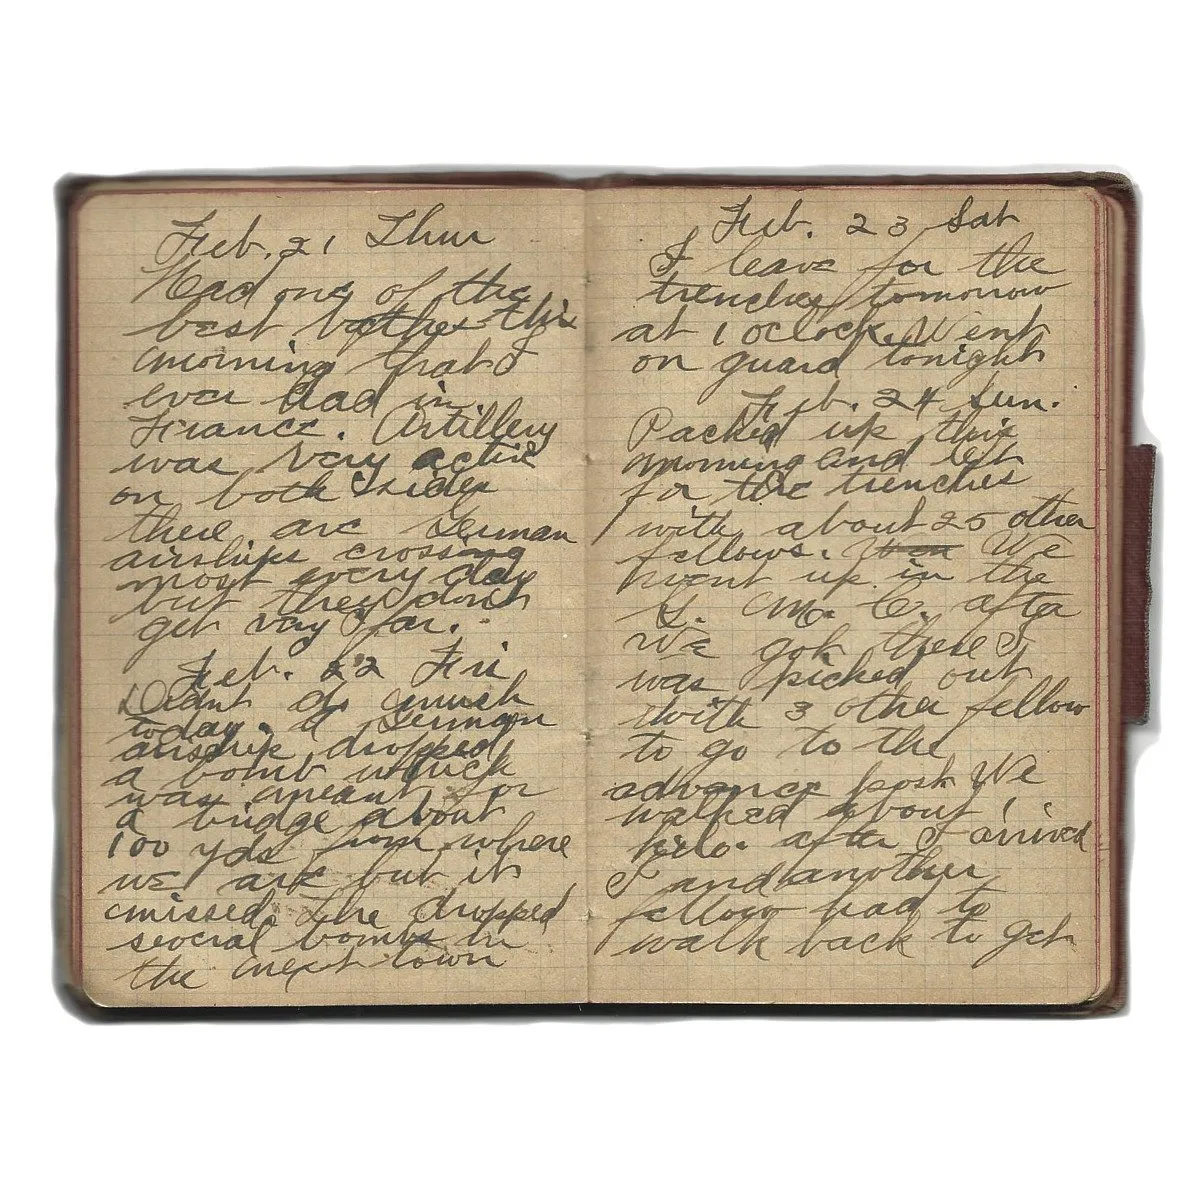 Feb. 21 Thur
Had one of the
best bathes this
morning that I
ever had in
France. Artillery
was very active
on both sides
there are German
airships crossing
most every day
but they dont
get very far.
Feb. 22 Fri
Didnt do much
today. A German
airship dropped
a bomb which
was meant for
a bridge about
100 yds from where
we are but it
missed. He dropped
several bombs in
the next town
Feb. 23 Sat
I leave for the
trenches tomorrow
at 1 oclock. Went
on guard tonight
Feb. 24 Sun.
Packed up this
morning and left
for the trenches
with about 25 other
fellows. We
went up in the
G. M. C. after
We got there I
was picked out
with 3 other fellow
to go to the
advance post We
walked about 1
kilo. after I arrived
I and another
fellow had to
walk back to get